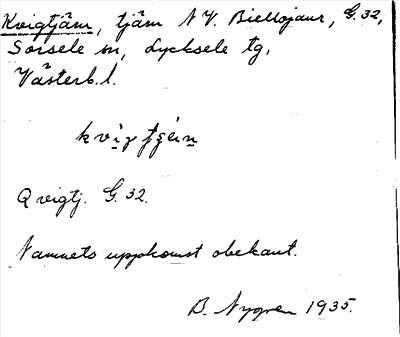 Kvigtjärn, tjärn N.V. Biellojaur, G. 32,
Sorsele sn, Lycksele tg,
Västerb. l.
Qvigtj. G. 32.
Namnets uppkomst obekant.
B. Nygren 1935.